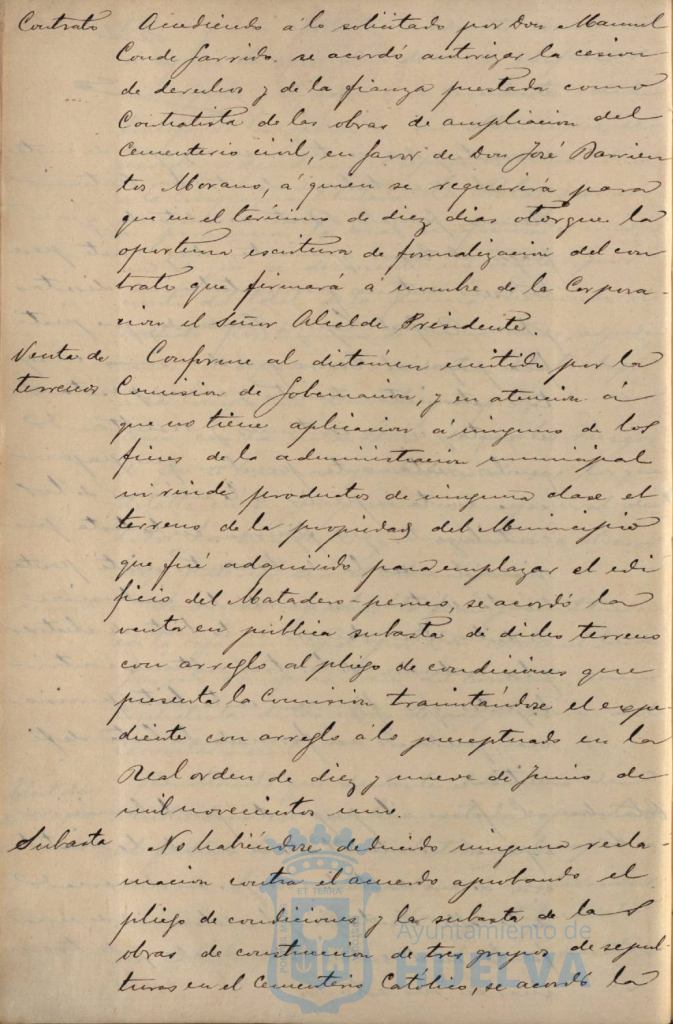 Contrato
Accediendo á lo solicitado por Don Manuel
Conde Garrido. se acordó autorizar la cesion
de derechos y de la fianza prestada como
Contratista de las obras de ampliacion del
Cementerio civil, en favor de Don José Barrien
tos Morano, á quien se requerirá para
que en el término de diez dias otorgue la
oportuna escritura de formalizacion del con
trato que firmará á nombre de la Corpora-
cion el Señor Alcalde Presidente.
Venta de
terrenos
Conforme al dictámen emitido por la
Comision de Gobernacion, y en atencion á
que no tiene aplicacion á ninguno de los
fines de la administracion municipal
ni rinde productos de ninguna clase el
terreno de la propiedad del Municipio
que fué adquirido para emplazar el edi
ficio del Matadero-perneo, se acordó la
venta en pública subasta de dicho terreno
con arreglo al pliego de condiciones que
presenta la Comision tramitándose el expe-
diente con arreglo á lo preceptuado en la
Real orden de diez y nueve de Junio de
mil novecientos uno.
Subasta
No habiéndose deducido ninguna recla-
macion contra el acuerdo aprobando el
pliego de condiciones y la subasta de las
obras de construccion de tres grupos de sepul-
turas en el Cementerio Católico, se acordó la
Ayuntamiento de
HUELVA
ET TERRA